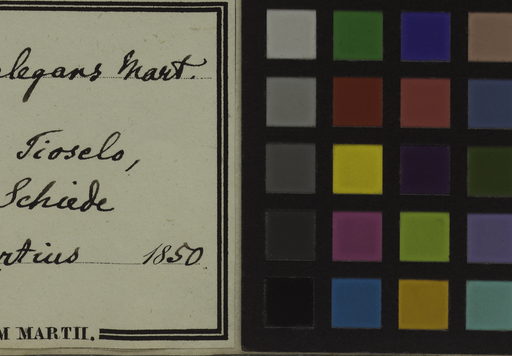 elegans Mart.
Tioselo,
Schiede
rtius 1850
M MARTII.